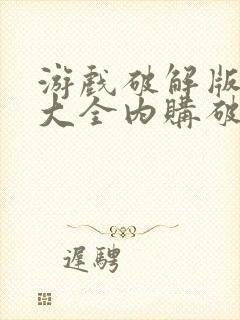 游戲破解版
大全內購破
遲騁